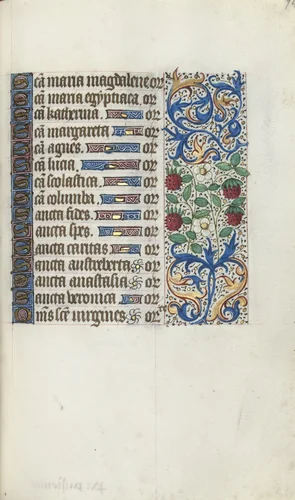 Sca maria magdalene or
Sca maria egyptiaca. or
Sca katherina. or
Sca margareta or
Sca agnes. or
Sca lucia. or
Sca scolastica. or
Sca columba. or
Sancta fides. or
Sancta spes. or
Sancta caritas or
Sancta austreberta or
Sancta anastasia or
Sancta veronica or
Oms sce virgines. or